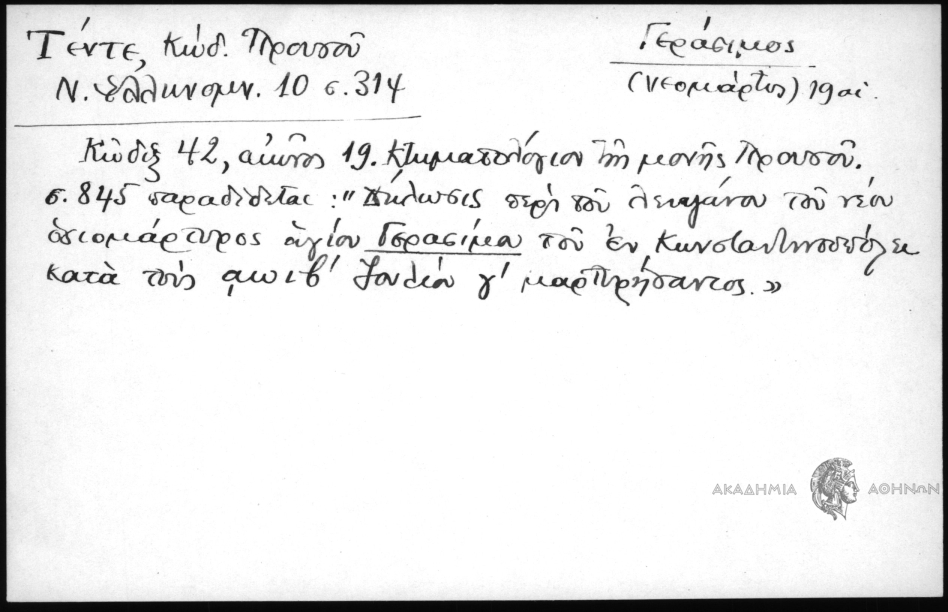 Τέντε, Κώδ. Προυσοῦ
Ν. Ἑλληνομν. 10 σ. 314
Γεράσιμος
(νεομάρτυς) 19 αἰ.
Κώδιξ 42, αἰῶνος 19. Κτηματολόγιον τῆς μονῆς Προυσοῦ.
σ. 845 παραδίδεται: "Δήλωσις περὶ τοῦ λειψάνου τοῦ νέου
ὁσιομάρτυρος ἁγίου Γερασίμου τοῦ ἐν Κωνσταντινουπόλει
κατὰ τοὺς ͵αωιβ' Ἰουλίου γ' μαρτυρήσαντος.»
ΑΚΑΔΗΜΙΑ ΑΘΗΝΩΝ